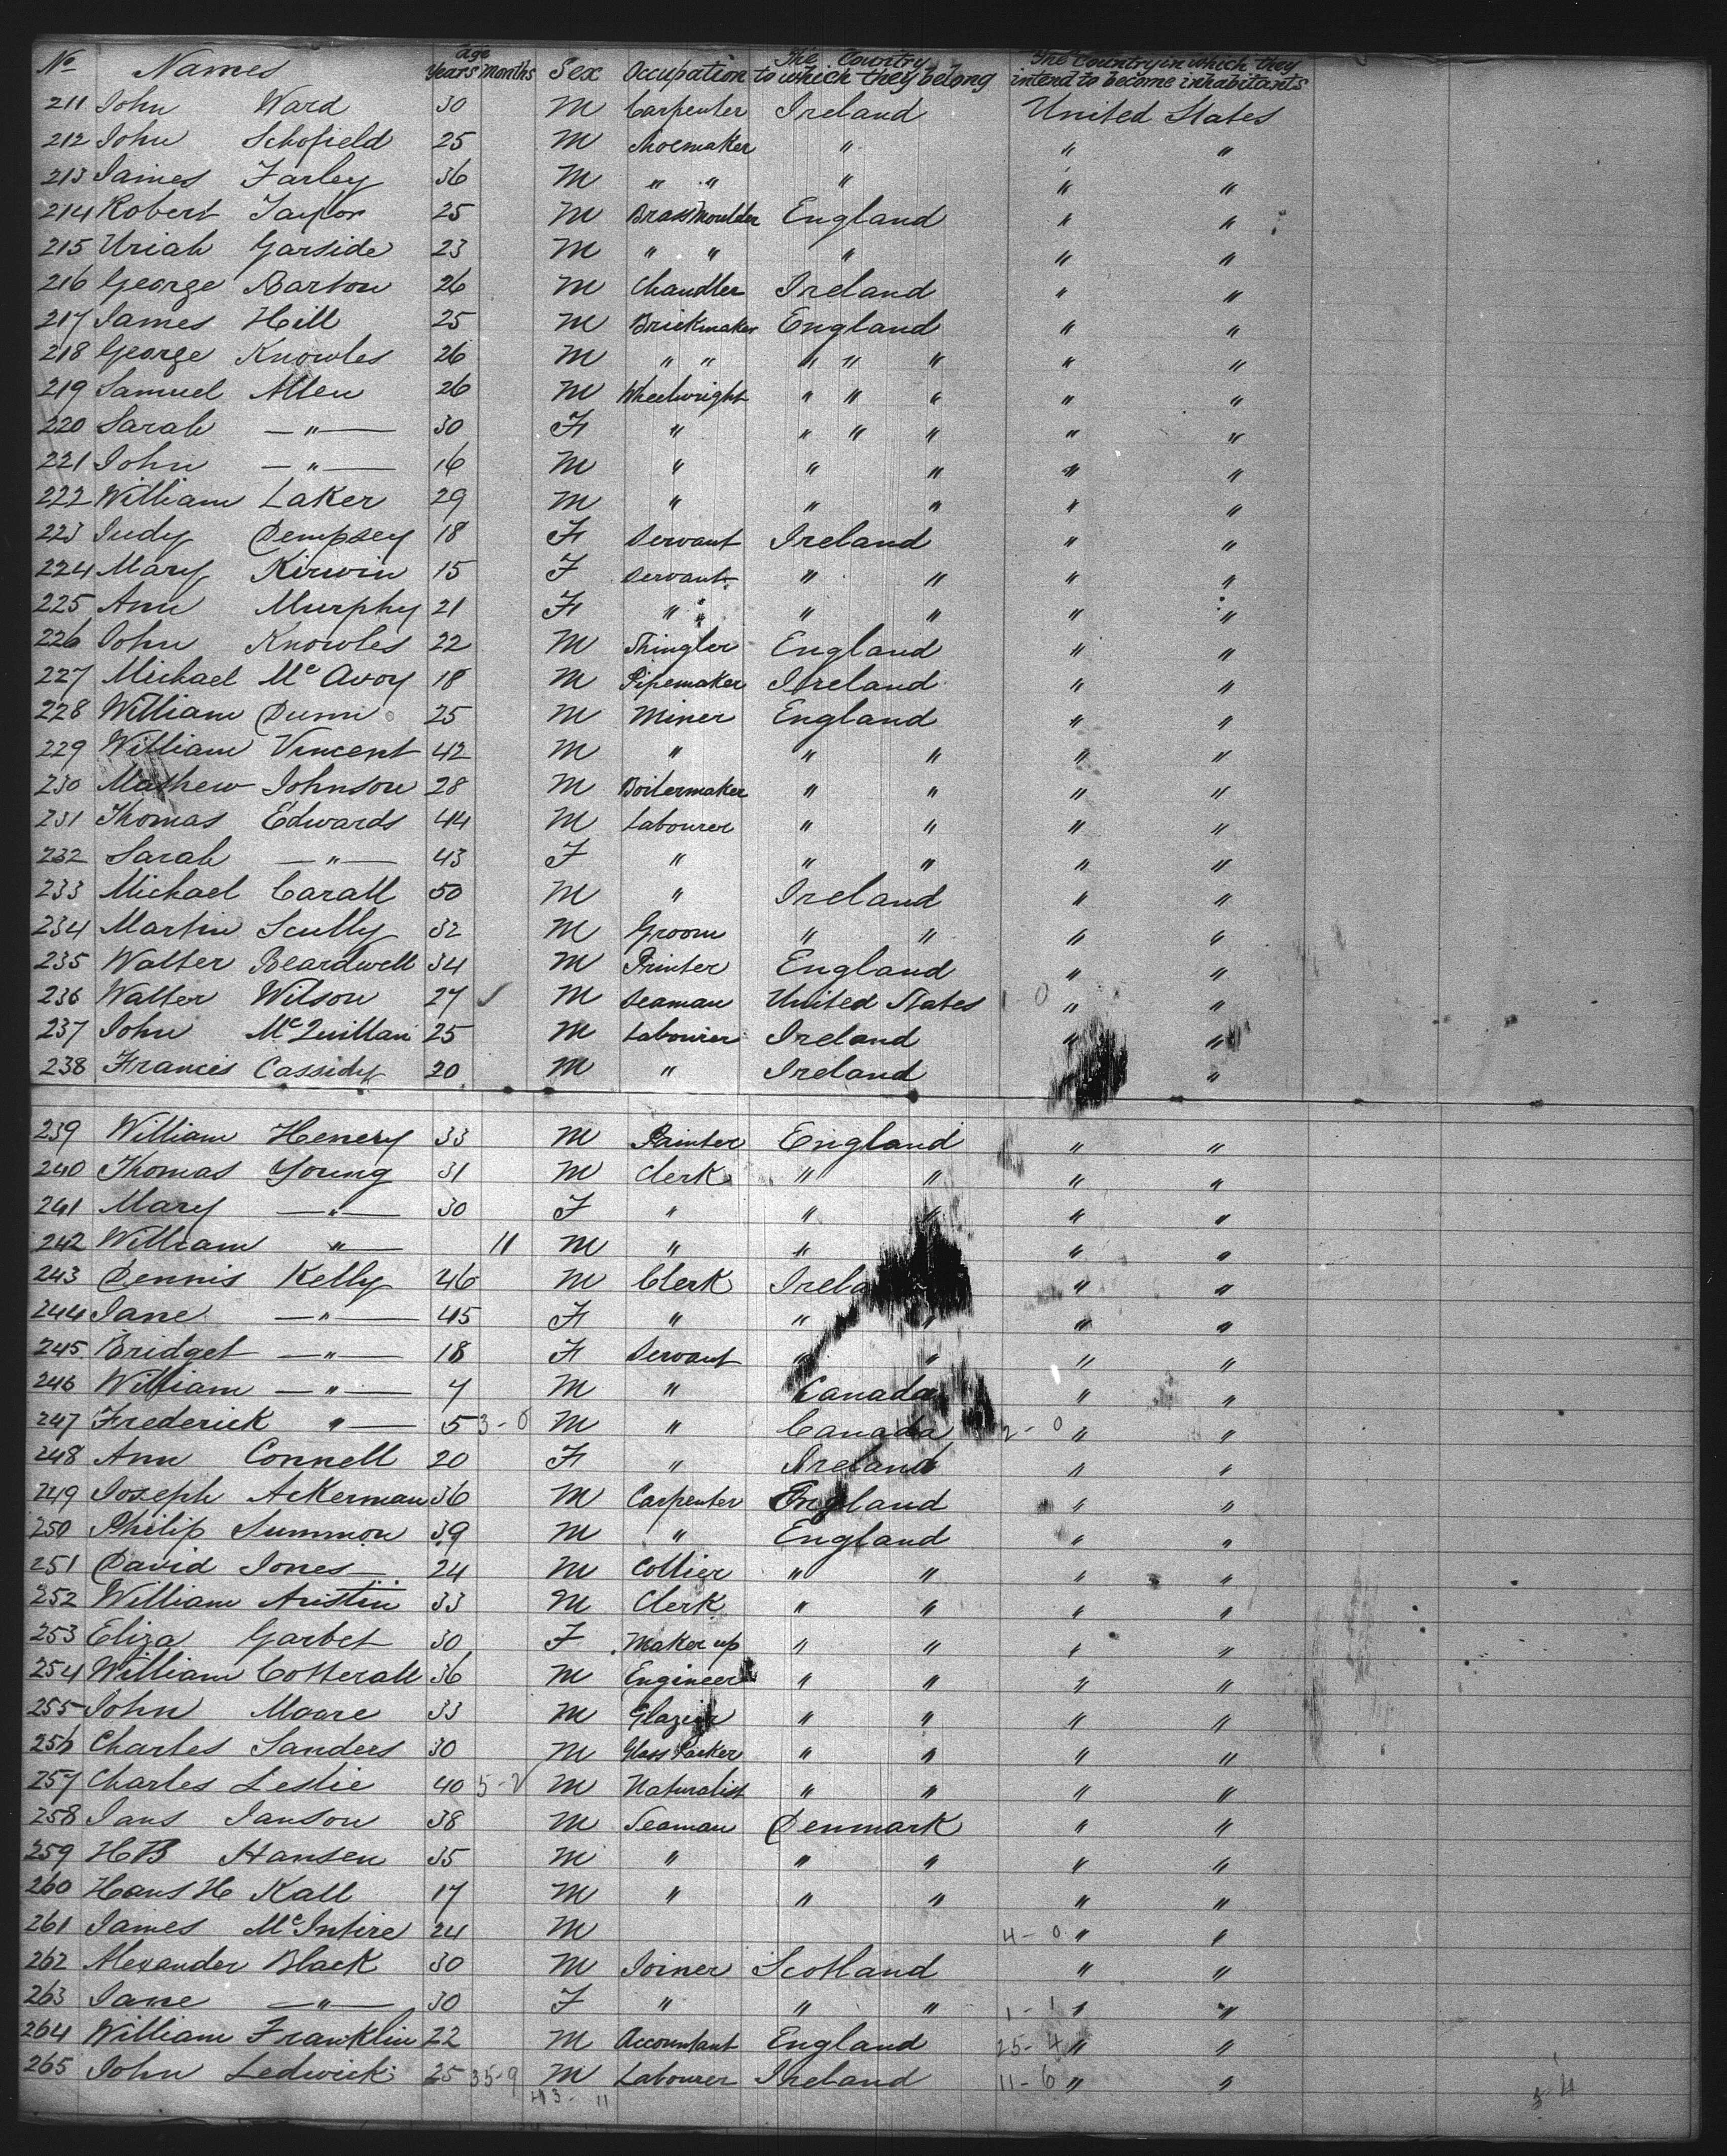 No Names Age Years Months Sex Occupation The Country to which they belong The Country in which they intend to become inhabitants
211 John Ward 30 M Carpenter Ireland United States
212 John Schofield 25 M Shoemaker " " "
213 James Farley 36 M " " " " "
214 Robert Taylor 25 M Brass Moulder England " "
215 Uriah Garside 23 M " " " " "
216 George Barton 26 M Chandler Ireland " "
217 James Hill 25 M Brickmaker England " "
218 George Knowles 26 M " " " " " " "
219 Samuel Allen 26 M Wheelwright " " " " "
220 Sarah — " — 30 F " " " " " "
221 John — " — 16 M " " " " "
222 William Laker 29 M " " " " "
223 Judy Dempsey 18 F Servant Ireland " "
224 Mary Kirwin 15 F Servant " " " "
225 Ann Murphy 21 F " " " " " "
226 John Knowles 22 M Shingler England " "
227 Michael McAvoy 18 M Pipemaker Ireland " "
228 William Dunn 25 M Miner England " "
229 William Vincent 42 M " " " " "
230 Mathew Johnson 28 M Boilermaker " " " "
231 Thomas Edwards 44 M Labourer " " " "
232 Sarah — " — 43 F " " " " "
233 Michael Carall 50 M " Ireland " "
234 Martin Scully 32 M Groom " " " "
235 Walter Beardwell 34 M Printer England " "
236 Walter Wilson 27 ✓ M Seaman United States 1 0 " "
237 John McQuillan 25 M Labourer Ireland " "
238 Francis Cassidy 20 M " Ireland "
239 William Henery 33 M Painter England " "
240 Thomas Young 31 M Clerk " " " "
241 Mary — " — 30 F " " " " "
242 William " — 11 M " " " "
243 Dennis Kelly 46 M Clerk Irela " "
244 Jane — " — 45 F " " " " "
245 Bridget — " — 18 F Servant " " " "
246 William — " — 7 M " Canada " "
247 Frederick " — 5 3-0 M " Canada 2-0 " "
248 Ann Connell 20 F " Ireland " "
249 Joseph Ackerman 36 M Carpenter England " "
250 Philip Summon 39 M " England " "
251 David Jones 24 M Collier " " " "
252 William Austin 33 M Clerk " " " "
253 Eliza Garbet 30 F Maker up " " " "
254 William Cotterall 36 M Engineer " " " "
255 John Moore 33 M Glazier " " " "
256 Charles Sanders 30 M Glass Packer " " " "
257 Charles Leslie 40 5-2 M Naturalist " " " "
258 Jans Janson 38 M Seaman Denmark " "
259 HB Hansen 35 M " " " " "
260 Hans H Kall 17 M " " " " "
261 James McIntire 24 M 4-0 " "
262 Alexander Black 30 M Joiner Scotland " "
263 Jane — " — 30 F " " " 1-1 " "
264 William Franklin 22 M Accountant England 25-4 " "
265 John Ledwick 25 35-9 M Labourer Ireland 11-6 " "
43-11 3-4